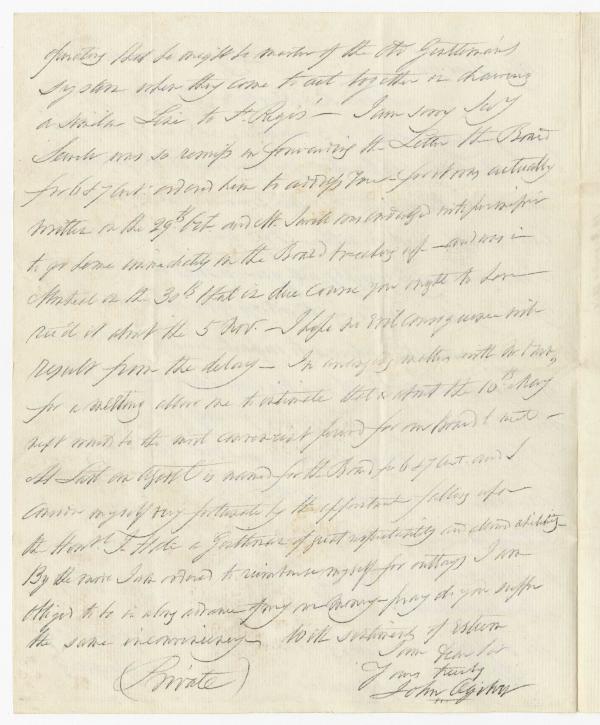 operating that he might be master of the old Gentleman's
system when they come to act together in drawing
a similar Line to St. Regis — I am sorry Secy
Sewell was so remiss in forwarding the Letter the Board
for 6 & 7 Art: ordered him to address You — for it was actually
written on the 29th Oct and Mr. Sewell was indulged with permission
to go home immediately on the Board breaking up — and was in
Montreal on the 30th that in due course you ought to have
rec'd it about the 5 Nov. — I hope no evil consequence will
result from the delay — In arranging matters with Mr
for a meeting allow me to intimate that about the 10th May
next would be the most convenient period for our board to meet —
at last an Agent is named for the Board for 6 & 7 Art. and I
conceive myself very fortunate by the appointment falling upon
the Honble J. Hale a Gentleman of great respectability and abilities
By the more I am ordered to reimburse myself for outlays I am
obliged to be in advance of my own money — pray do you suffer
the same inconveniency — With sentiments of Esteem
I am Dear Sir
Yours truly
(Private)
John Ogilvy